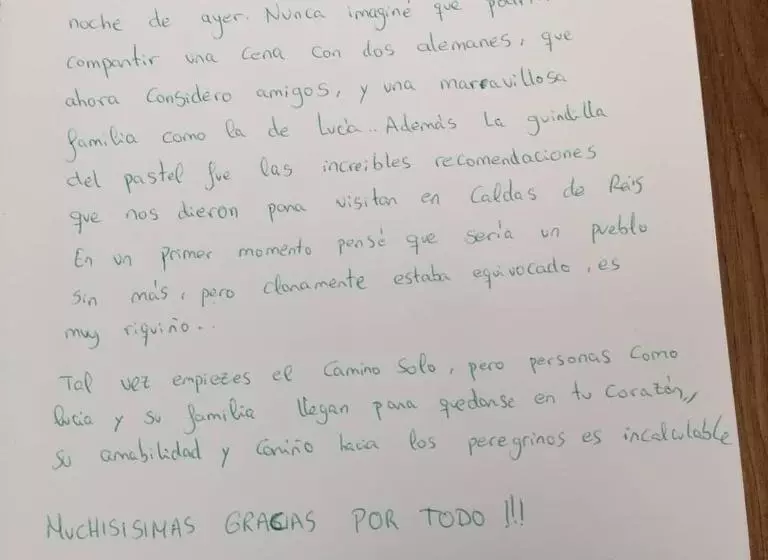 noche de ayer. Nunca imaginé que
compartir una cena con dos alemanes, que
ahora considero amigos, y una marravillosa
familia como la de Lucía.. Además la guindilla
del pastel fue las increibles recomendaciones
que nos dieron para visitar en Caldas de Reis
En un primer momento pensé que sería un pueblo
sin más, pero claramente estaba equivocado, es
muy riquiño..
Tal vez empiezes el Camino solo, pero personas como
lucia y su familia llegan para quedarse en tu corazón,,
su amabilidad y cariño hacia los peregrinos es incalculable
MUCHISISIMAS GRACIAS POR TODO !!!